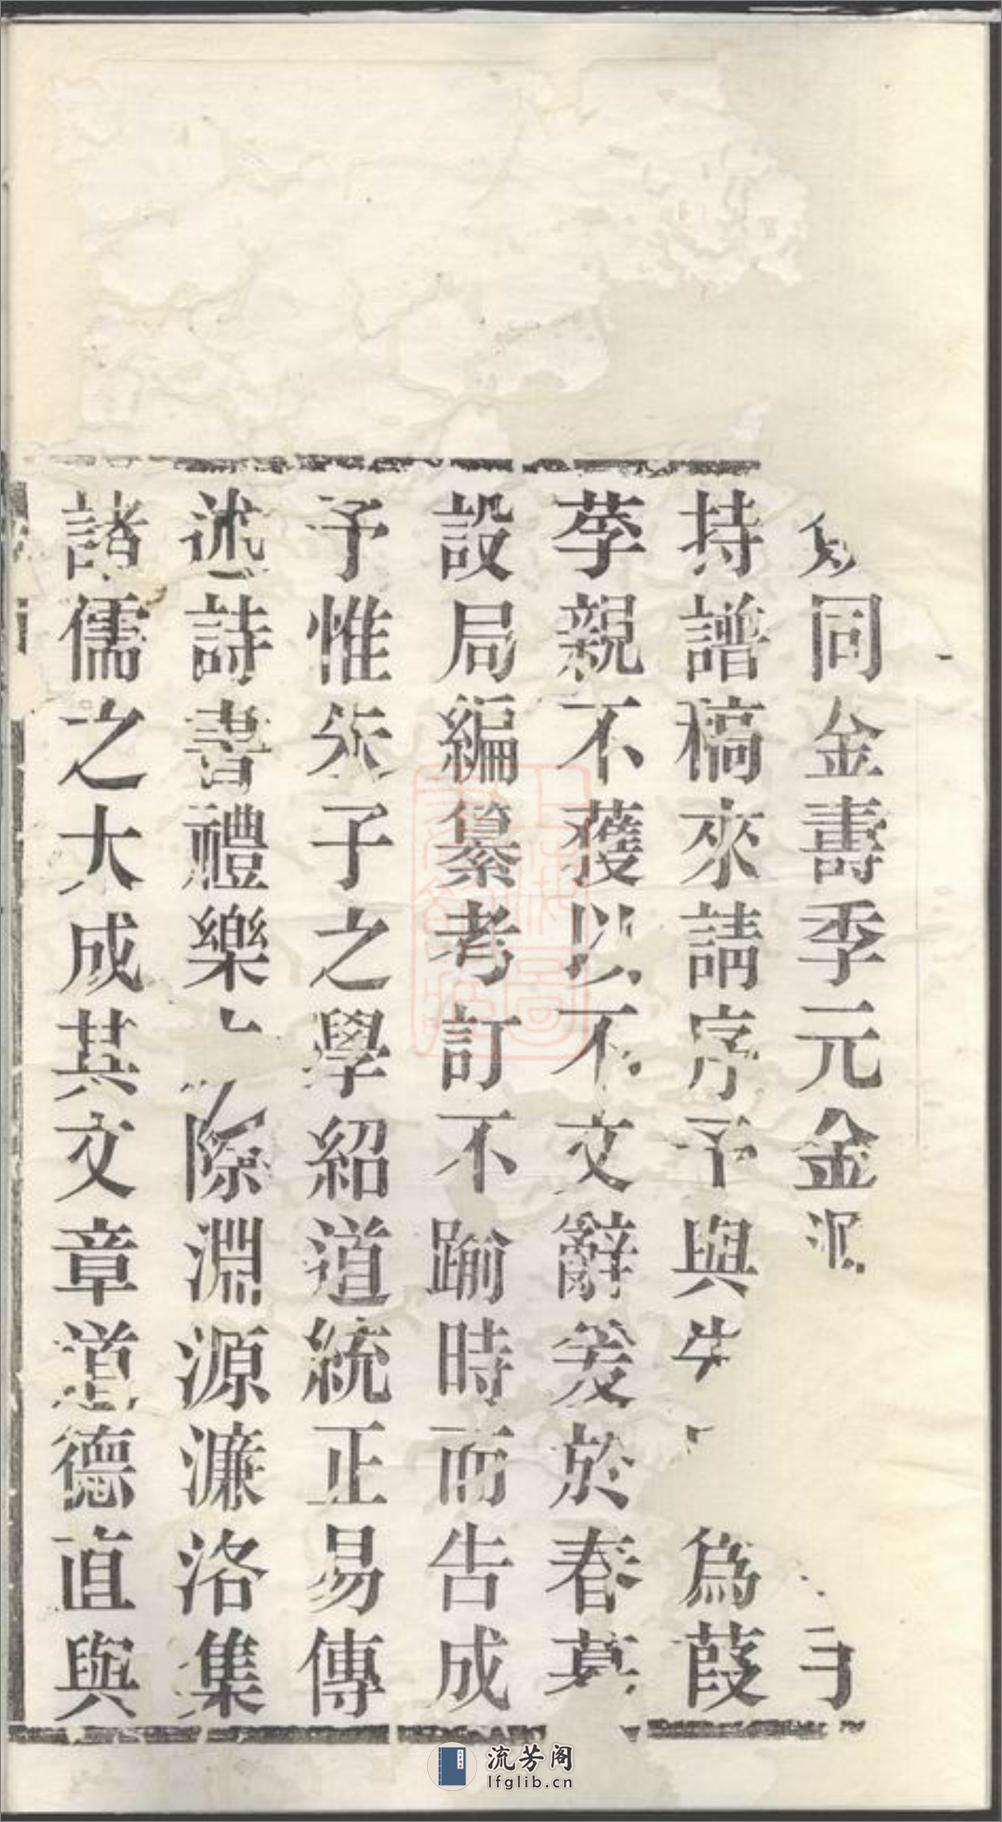 同金壽季元金
持譜稿來請序予與 爲葭
莩親不獲以不文辭爰於春莫
設局編纂考訂不踰時而告成
予惟朱子之學紹道統正易傳
述詩書禮樂 際淵源濂洛集
諸儒之大成其文章道德直與
流芳阁
lfglib.cn